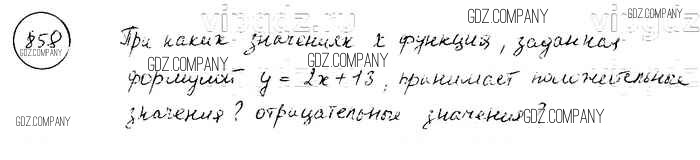 858 При каких значениях x функция, заданная
формулой y = 2x + 13, принимает положительные
значения? отрицательные значения?
GDZ.COMPANY
GDZ.COMPANY
GDZ.COMPANY
GDZ.COMPANY
GDZ.COMPANY
GDZ.COMPANY
GDZ.COMPANY
GDZ.COMPANY